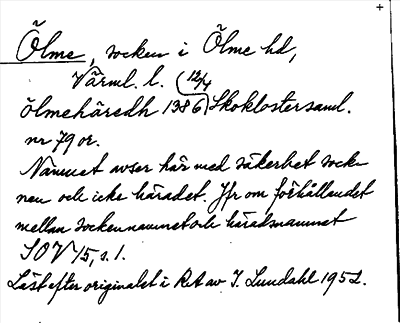 Ölme, socken i Ölme hd,
Värml. l. 12/4
ölmehäredh 1386 Skoklostersaml.
nr 79 or.
Namnet avser här med säkerhet socke-
nen och icke häradet. Jfr om förhållandet
mellan sockennamnet och häradsnamnet
SOV 5, s. 1.
Läst efter originalet i RA av I. Lundahl 1952.